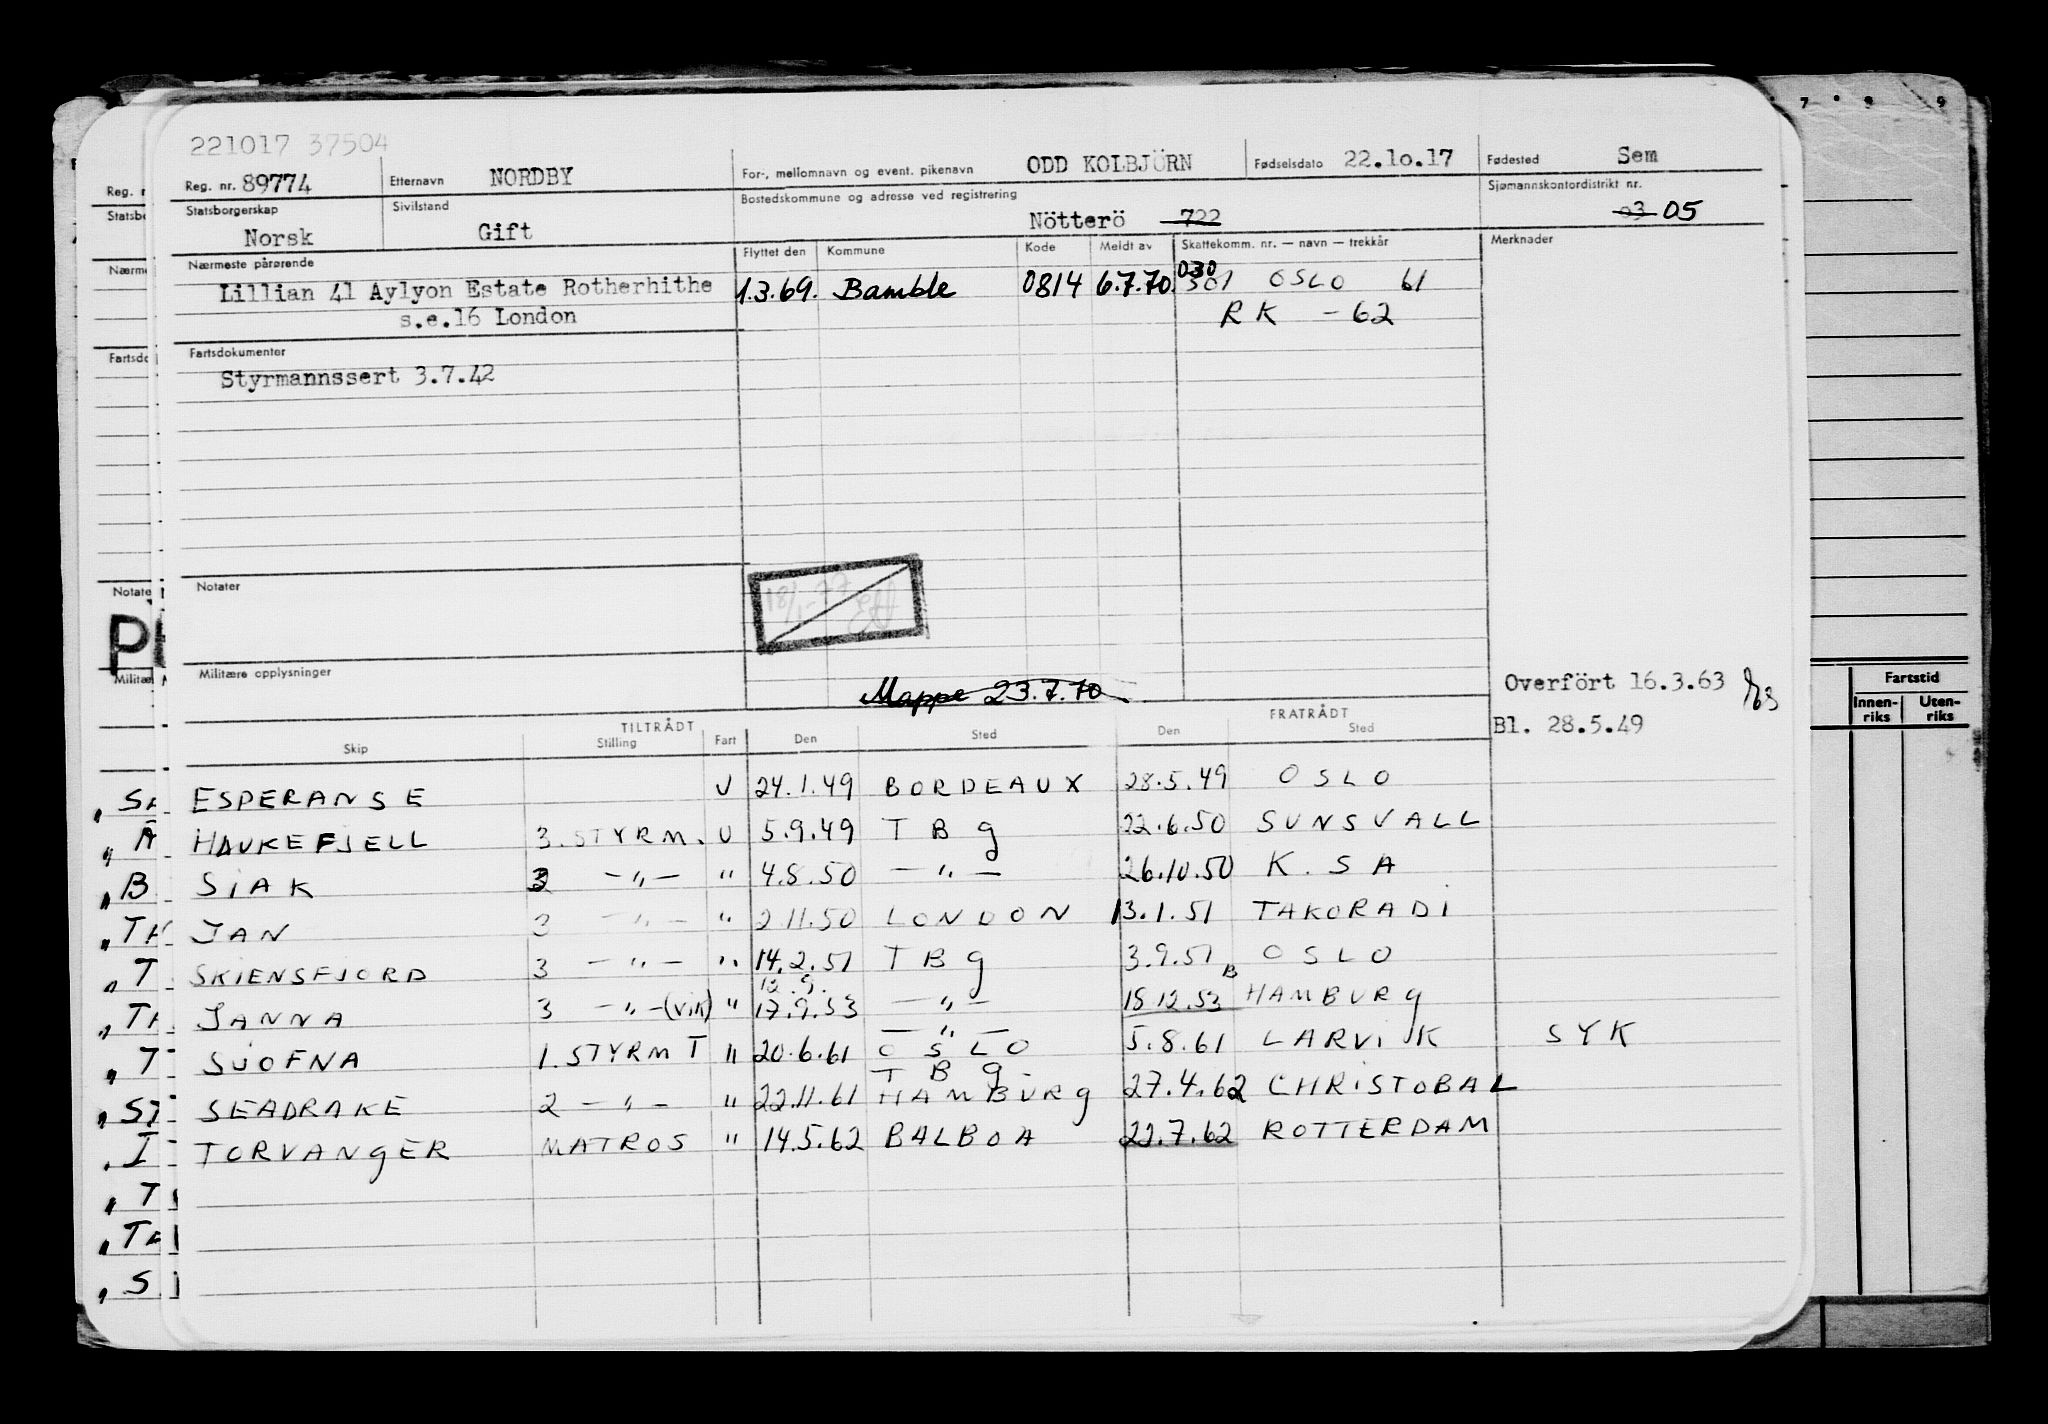 221017 37504
Reg. nr. 89774 Etternavn NORDBY For-, mellomnavn og event. pikenavn ODD KOLBJÖRN Fødselsdato 22.10.17 Fødested Sem
Statsborgerskap Norsk Sivilstand Gift Bostedskommune og adresse ved registrering Nötterö 722 Sjømannskontordistrikt nr. 03 05
Nærmeste pårørende Flyttet den Kommune Kode Meldt av Skattekomm. nr. — navn — trekkår Merknader
Lillian 41 Aylyon Estate Rotherhithe 1.3.69. Bamble 0814 6.7.70. 030 301 OSLO 61
s.e.16 London RK - 62
Fartsdokumenter
Styrmannssert 3.7.42
Notater
Militære opplysninger
Mappe 23.7.70
Overfört 16.3.63
Bl. 28.5.49
TILTRÅDT FRATRÅDT
Skip Stilling Fart Den Sted Den Sted
ESPERANSE U 24.1.49 BORDEAUX 28.5.49 OSLO
HAUKEFJELL 3. STYRM. U 5.9.49 TBg 22.6.50 SUNSVALL
SIAK 3 -"- " 4.8.50 -"- 26.10.50 K.SA
JAN 3 -"- " 2.11.50 LONDON 13.1.51 TAKORADI
SKIENSFJORD 3 -"- " 14.2.51 TBg 3.9.51 OSLO
JANNA 3 -"- (vik) " 12.9. 17.9.53 -"- 18.12.53 B HAMBURg
SUOFNA 1. STYRM T " 20.6.61 -"- OSLO 5.8.61 LARVIK SYK
SEADRAKE 2 -"- " 22.11.61 TBg. HAMBURg 27.4.62 CHRISTOBAL
TORVANGER MATROS " 14.5.62 BALBOA 22.7.62 ROTTERDAM
Fartstid
Innen-riks Uten-riks